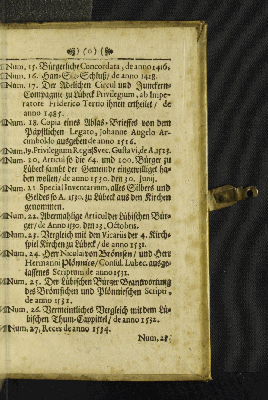 ) o (
Num. 15. Bürgerliche Concordata, de anno 1416.
Num. 16. Han-See-Schluß/ de anno 1418.
Num. 17. Der Adelichen Circul und Junckern-
Compagnie zu Lübeck Privilegium, ab Impe-
ratore Friderico Tertio ihnen ertheilet/ de
anno 1485.
Num. 18. Copia eines Ablas-Brieffes von dem
Päpstlichen Legato, Johanne Angelo Ar-
cimboldo ausgegeben de anno 1516.
Num. 19. Privilegium Regis Svec. Gustavi, de A. 1523.
Num. 20. Articul so die 64. und 100. Bürger zu
Lübeck sambt der Gemeinde eingewilliget ha-
ben wollen/ de anno 1530. den 30. Junij.
Num. 21. Special Inventarium, alles Silbers und
Geldes so A. 1530. zu Lübeck aus den Kirchen
genommen.
Num. 22. Abermahlige Articul der Lübischen Bür-
ger/ de Anno 1530. den 13. Octobris.
Num. 23. Vergleich mit den Vicariis der 4. Kirch-
spiel Kirchen zu Lübeck/ de anno 1531.
Num. 24. Herr Nicolai von Brömsen/ und Herr
Hermanni Plönnies/ Consul. Lubec. ausge-
lassenes Scriptum de anno 1531.
Num. 25. Der Lübischen Bürger Beantwortung
des Brömsischen und Plönnischen Scripti,
de anno 1531.
Num. 26. Vermeintliches Vergleich mit dem Lü-
bischen Thum-Cappittel/ de anno 1532.
Num. 27. Reces de anno 1534.
Num. 28.